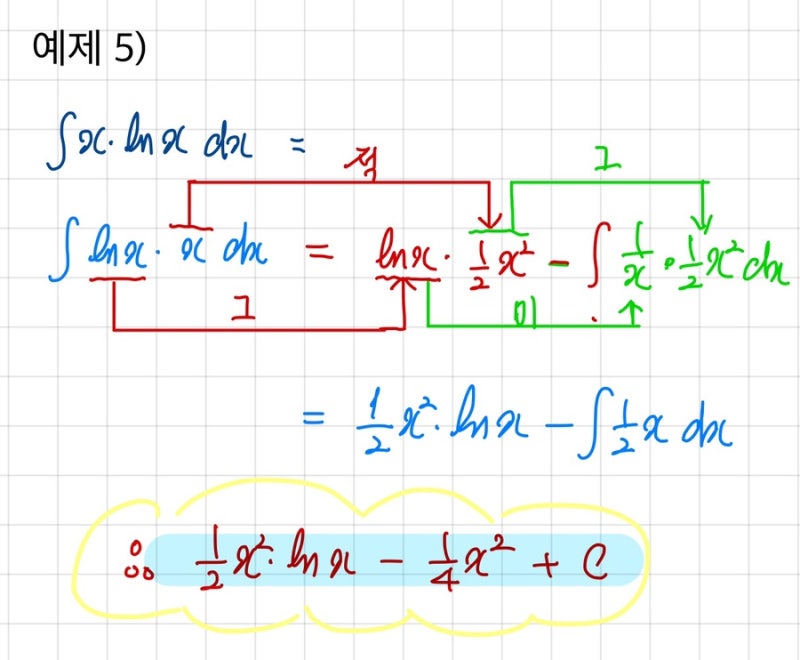 예제 5)
∫x·lnx dx =
적 그
∫lnx·x dx = lnx·1/2x² - ∫1/x·1/2x²dx
그 미
= 1/2x²·lnx - ∫1/2x dx
∴ 1/2x²·lnx - 1/4x² + C